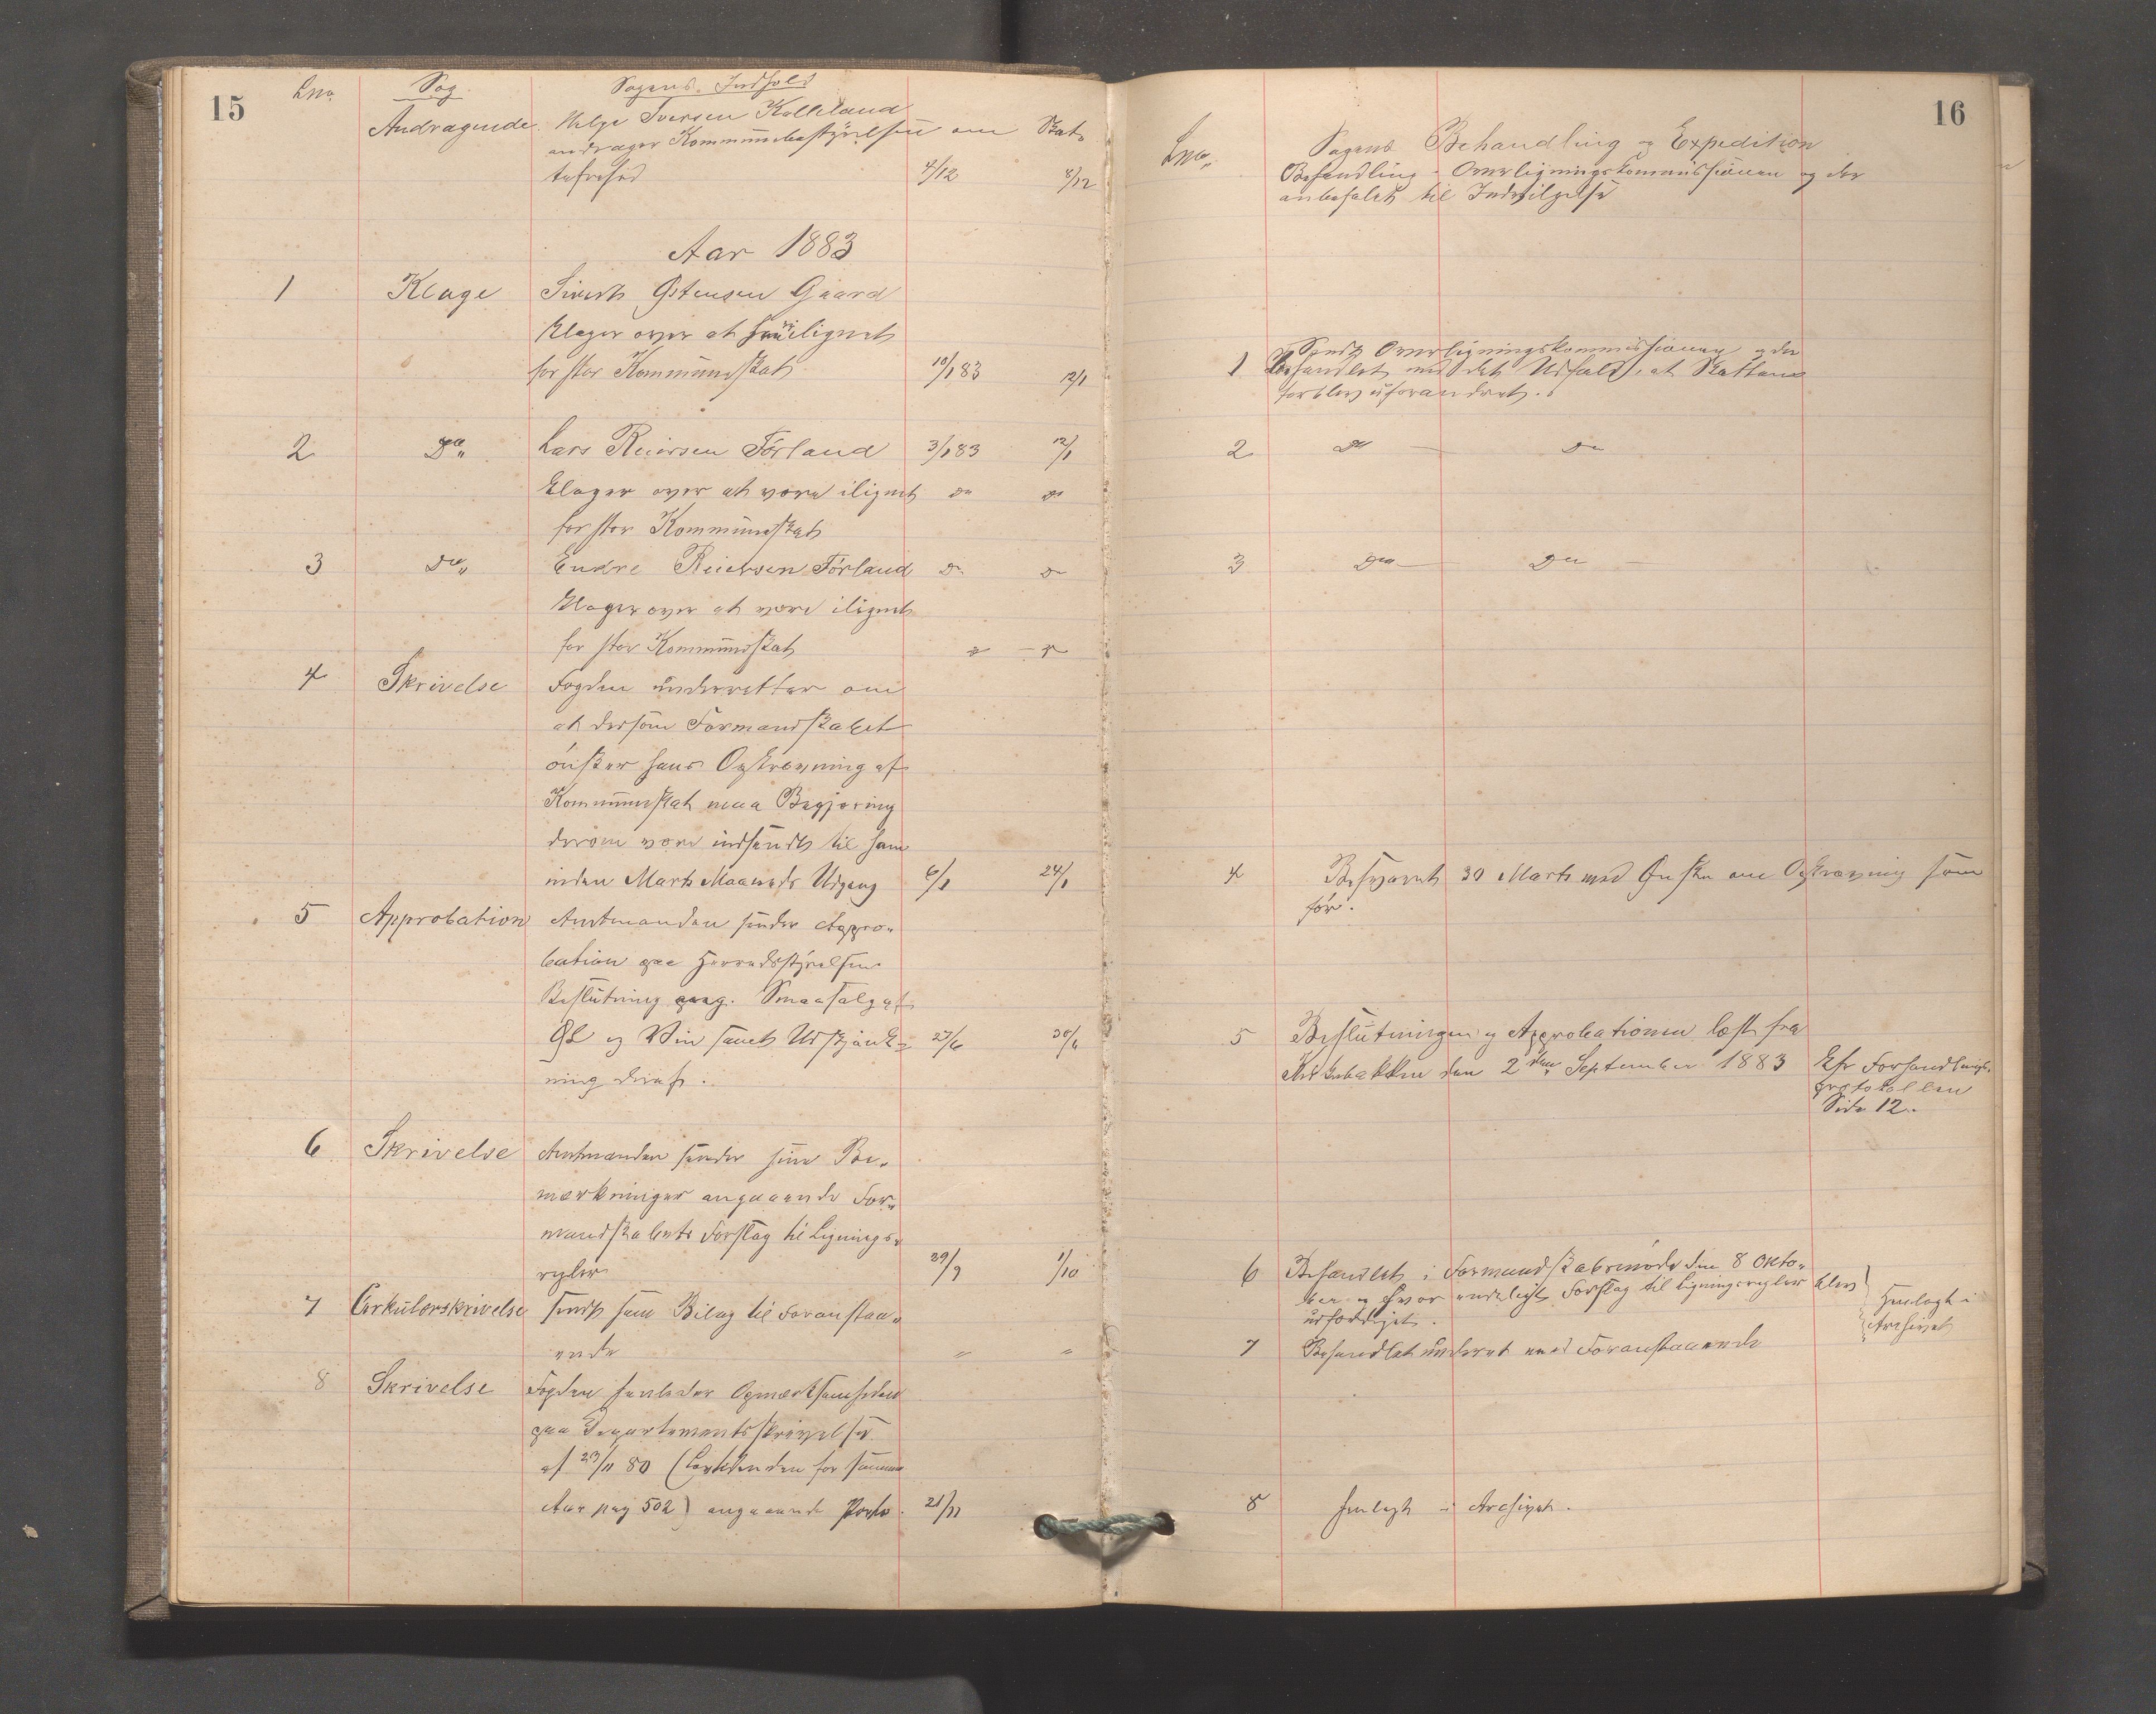 15
Lno. Sag Sagens Indhold
Andragende Helge Iversen Kolleland
andrager Kommunebestyrelsen om Skat-
tefrihed 4/12 8/12
Aar 1883
1 Klage Sivert Østensen Gaard
klager over at være ilignet
for stor Kommuneskat 10/1 83 12/1
2 Do„ Lars Reiersen Förland 3/1 83 12/1
klager over at være ilignet Do Do
for stor Kommuneskat
3 Do„ Endre Reiersen Förland Do Do
klager over at være ilignet
for stor Kommuneskat
4 Skrivelse Fogden underretter om
at dersom Formandskabet
önsker hans Opkrævning af
Kommuneskat maa Begjæring
derom være indsendt til ham
inden Marts Maaneds Udgang 6/1 24/1
5 Approbation Amtmanden sender Appro-
bation paa Herredsstyrelsens
Beslutning ang. Smaasalg af
Øl og Vin samt Udskjænk-
ning deraf. 27/6 30/6
6 Skrivelse Amtmanden sender sine Be-
mærkninger angaaende For-
mandskabets Forslag til Lignings-
regler 29/9 1/10
7 Cirkulærskrivelse sendt som Bilag til Foranstaa-
ende " "
8 Skrivelse Fogden henleder Opmærksomheden
paa Departementsskrivelse
af 23/11 80 (Lovtidenden for samme
Aar pag 502) angaaende Porto. 21/11
16
Lno„ Sagens Behandling og Expedition
Behandling i Overligningskommissionen og der
anbefalet til Indvilgelse
1 Sendt Overligningskommissionen og der
behandlet med det Udfald, at Skatten
forblev uforandret.
2 Do Do
3 Do Do
4 Besvaret 30 Marts med Ønske om Opkrævning som
för.
5 Beslutningen og Approbationen læst fra
Kirkebakken den 2den September 1883 Cfr Forhandlings-
protokollen
Side 12.
6 Behandlet i Formandskabsmöde den 8 Okto-
ber og hvor endeligt Forslag til Ligningsregler blev
udfærdiget. Henlagt i
Archivet
7 Behandlet underet med Foranstaaende
8 Henlagt i Archivet.